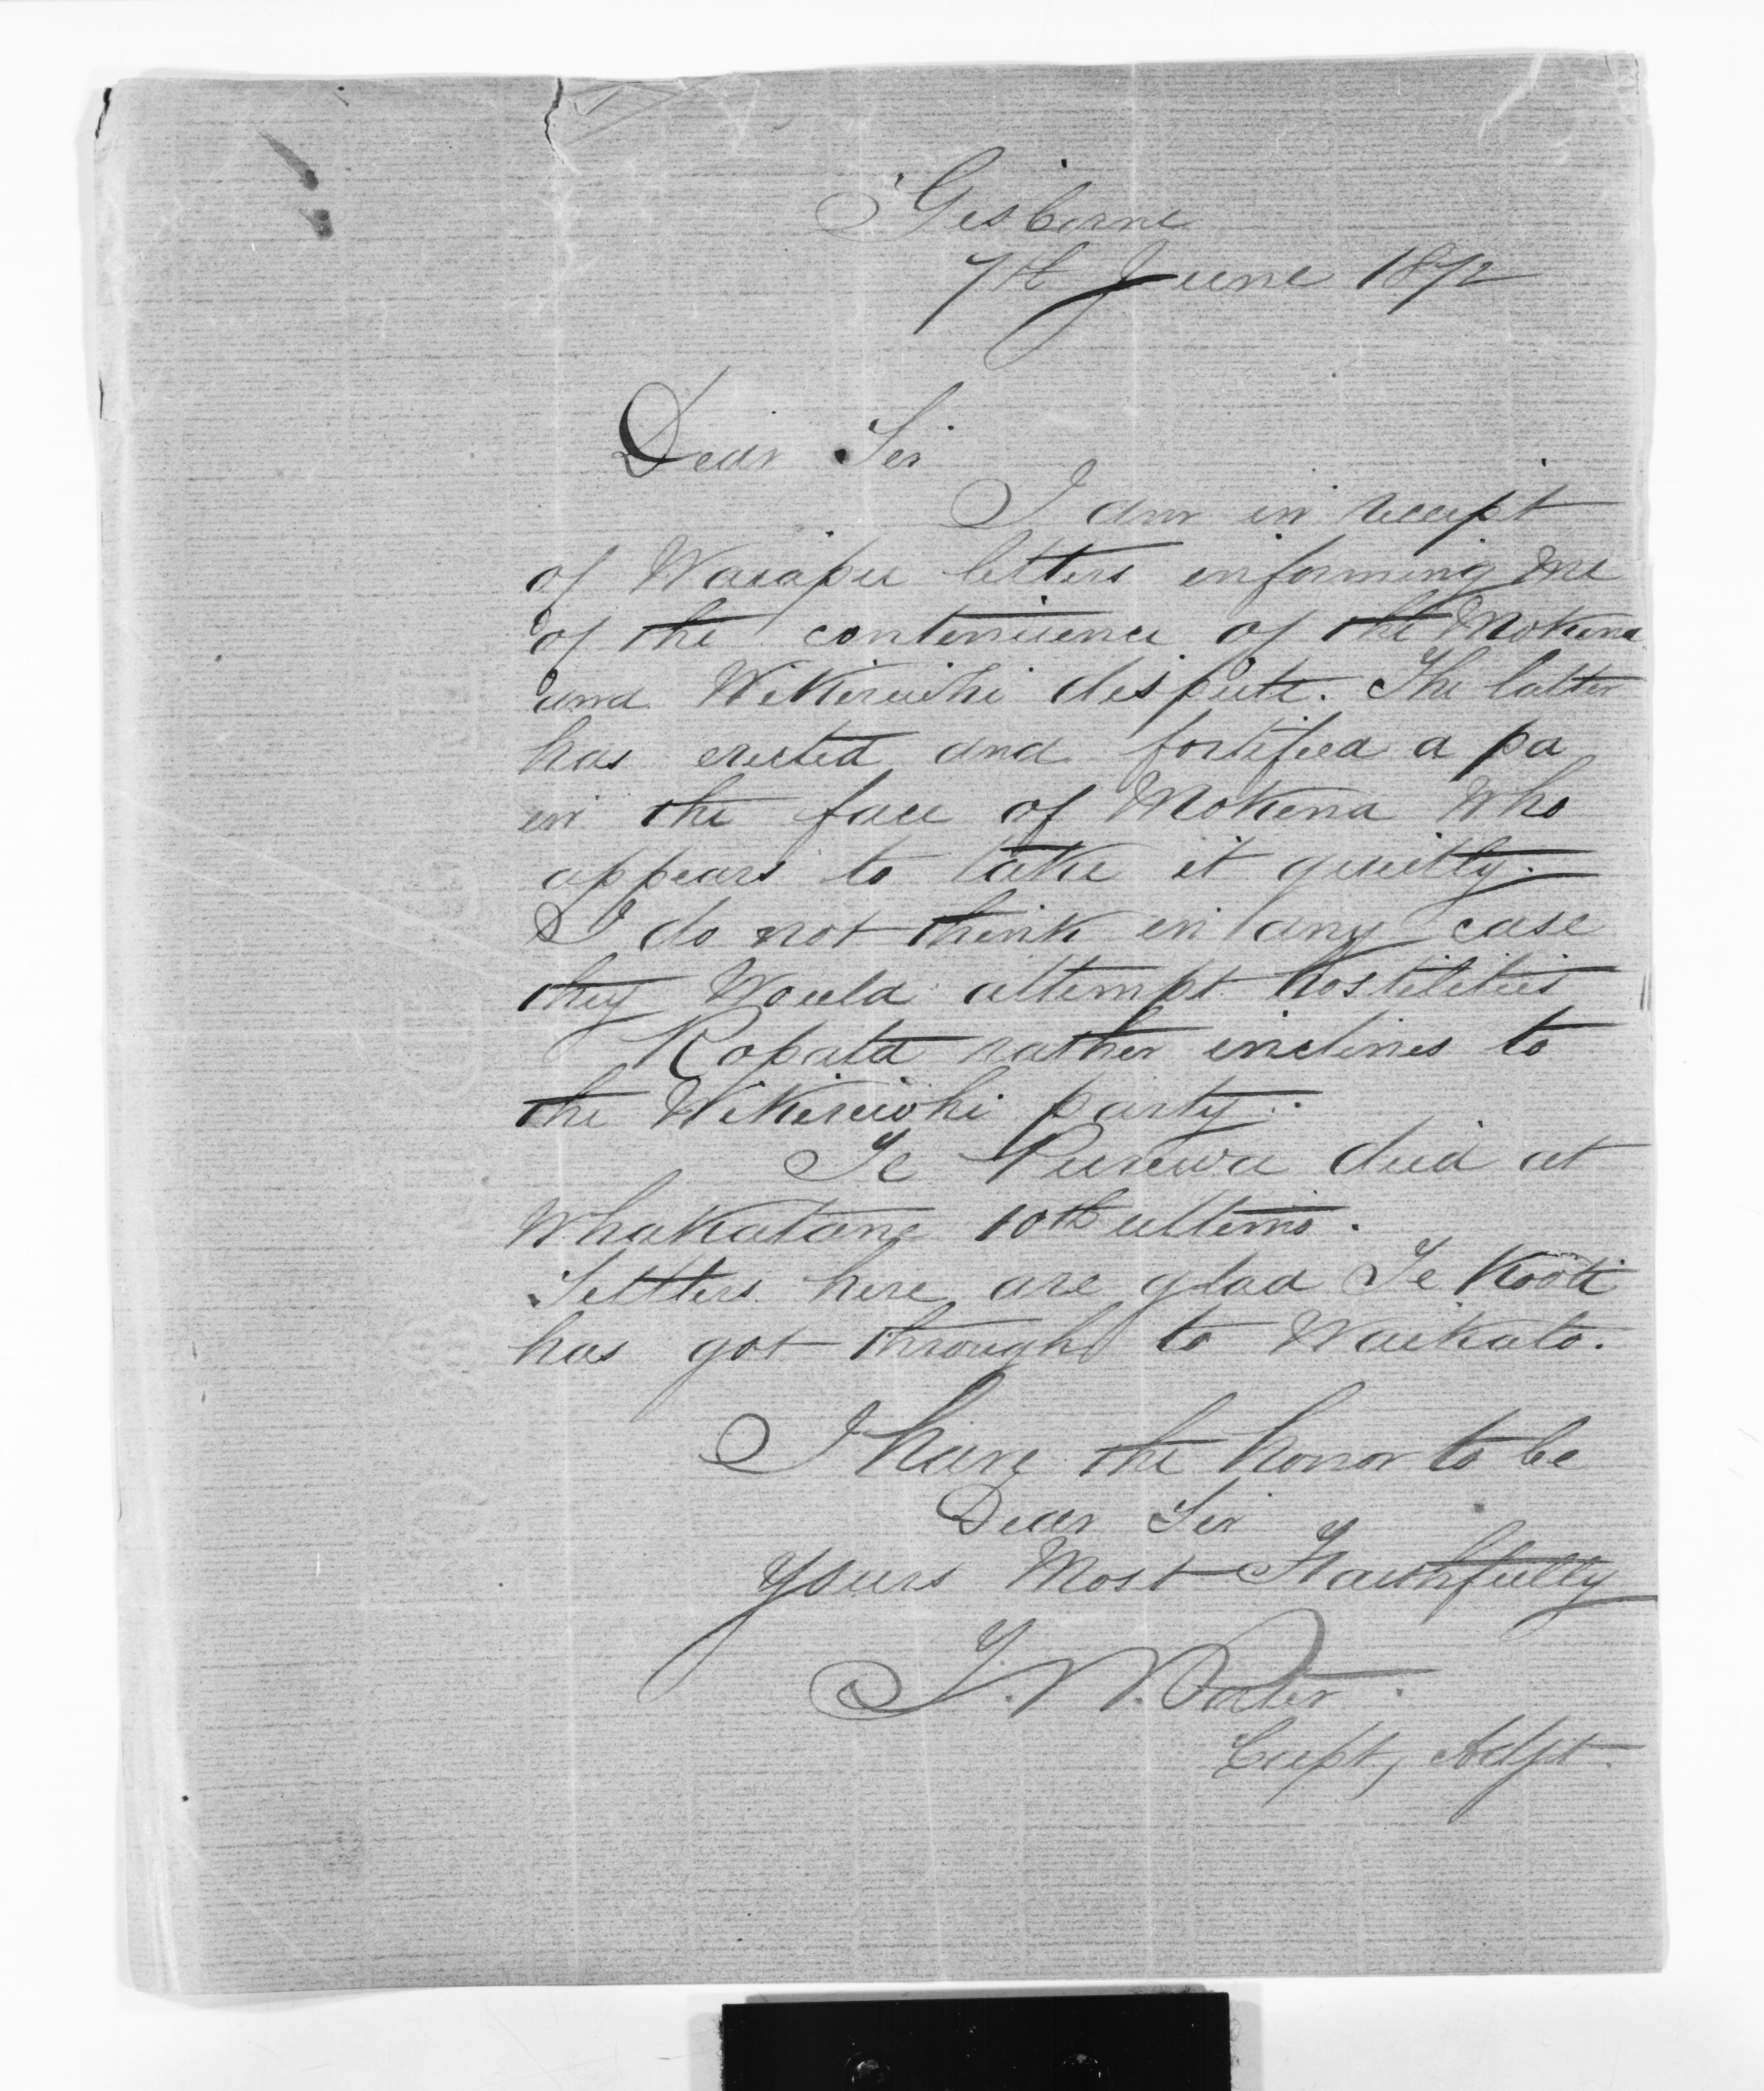 Gisborne
7th June 1872
Dear Sir
I am in receipt
of Waiapu letters informing me
of the continuence of the Mokena
and Wikiriwhi dispute. The latter
has erected and fortified a pa
in the face of Mokena who
appears to take it quietly.
I do not think in any case
they would attempt hostilities
Ropata rather inclines to
the Wikiriwhi party.
Te Purewa died at
Whakatane 10th ultimo.
Settlers here are glad Te Kooti
has got through to Waikato.
I have the honor to be
Dear Sir
Yours Most Faithfully
T. W. Porter
Capt, Adjt.